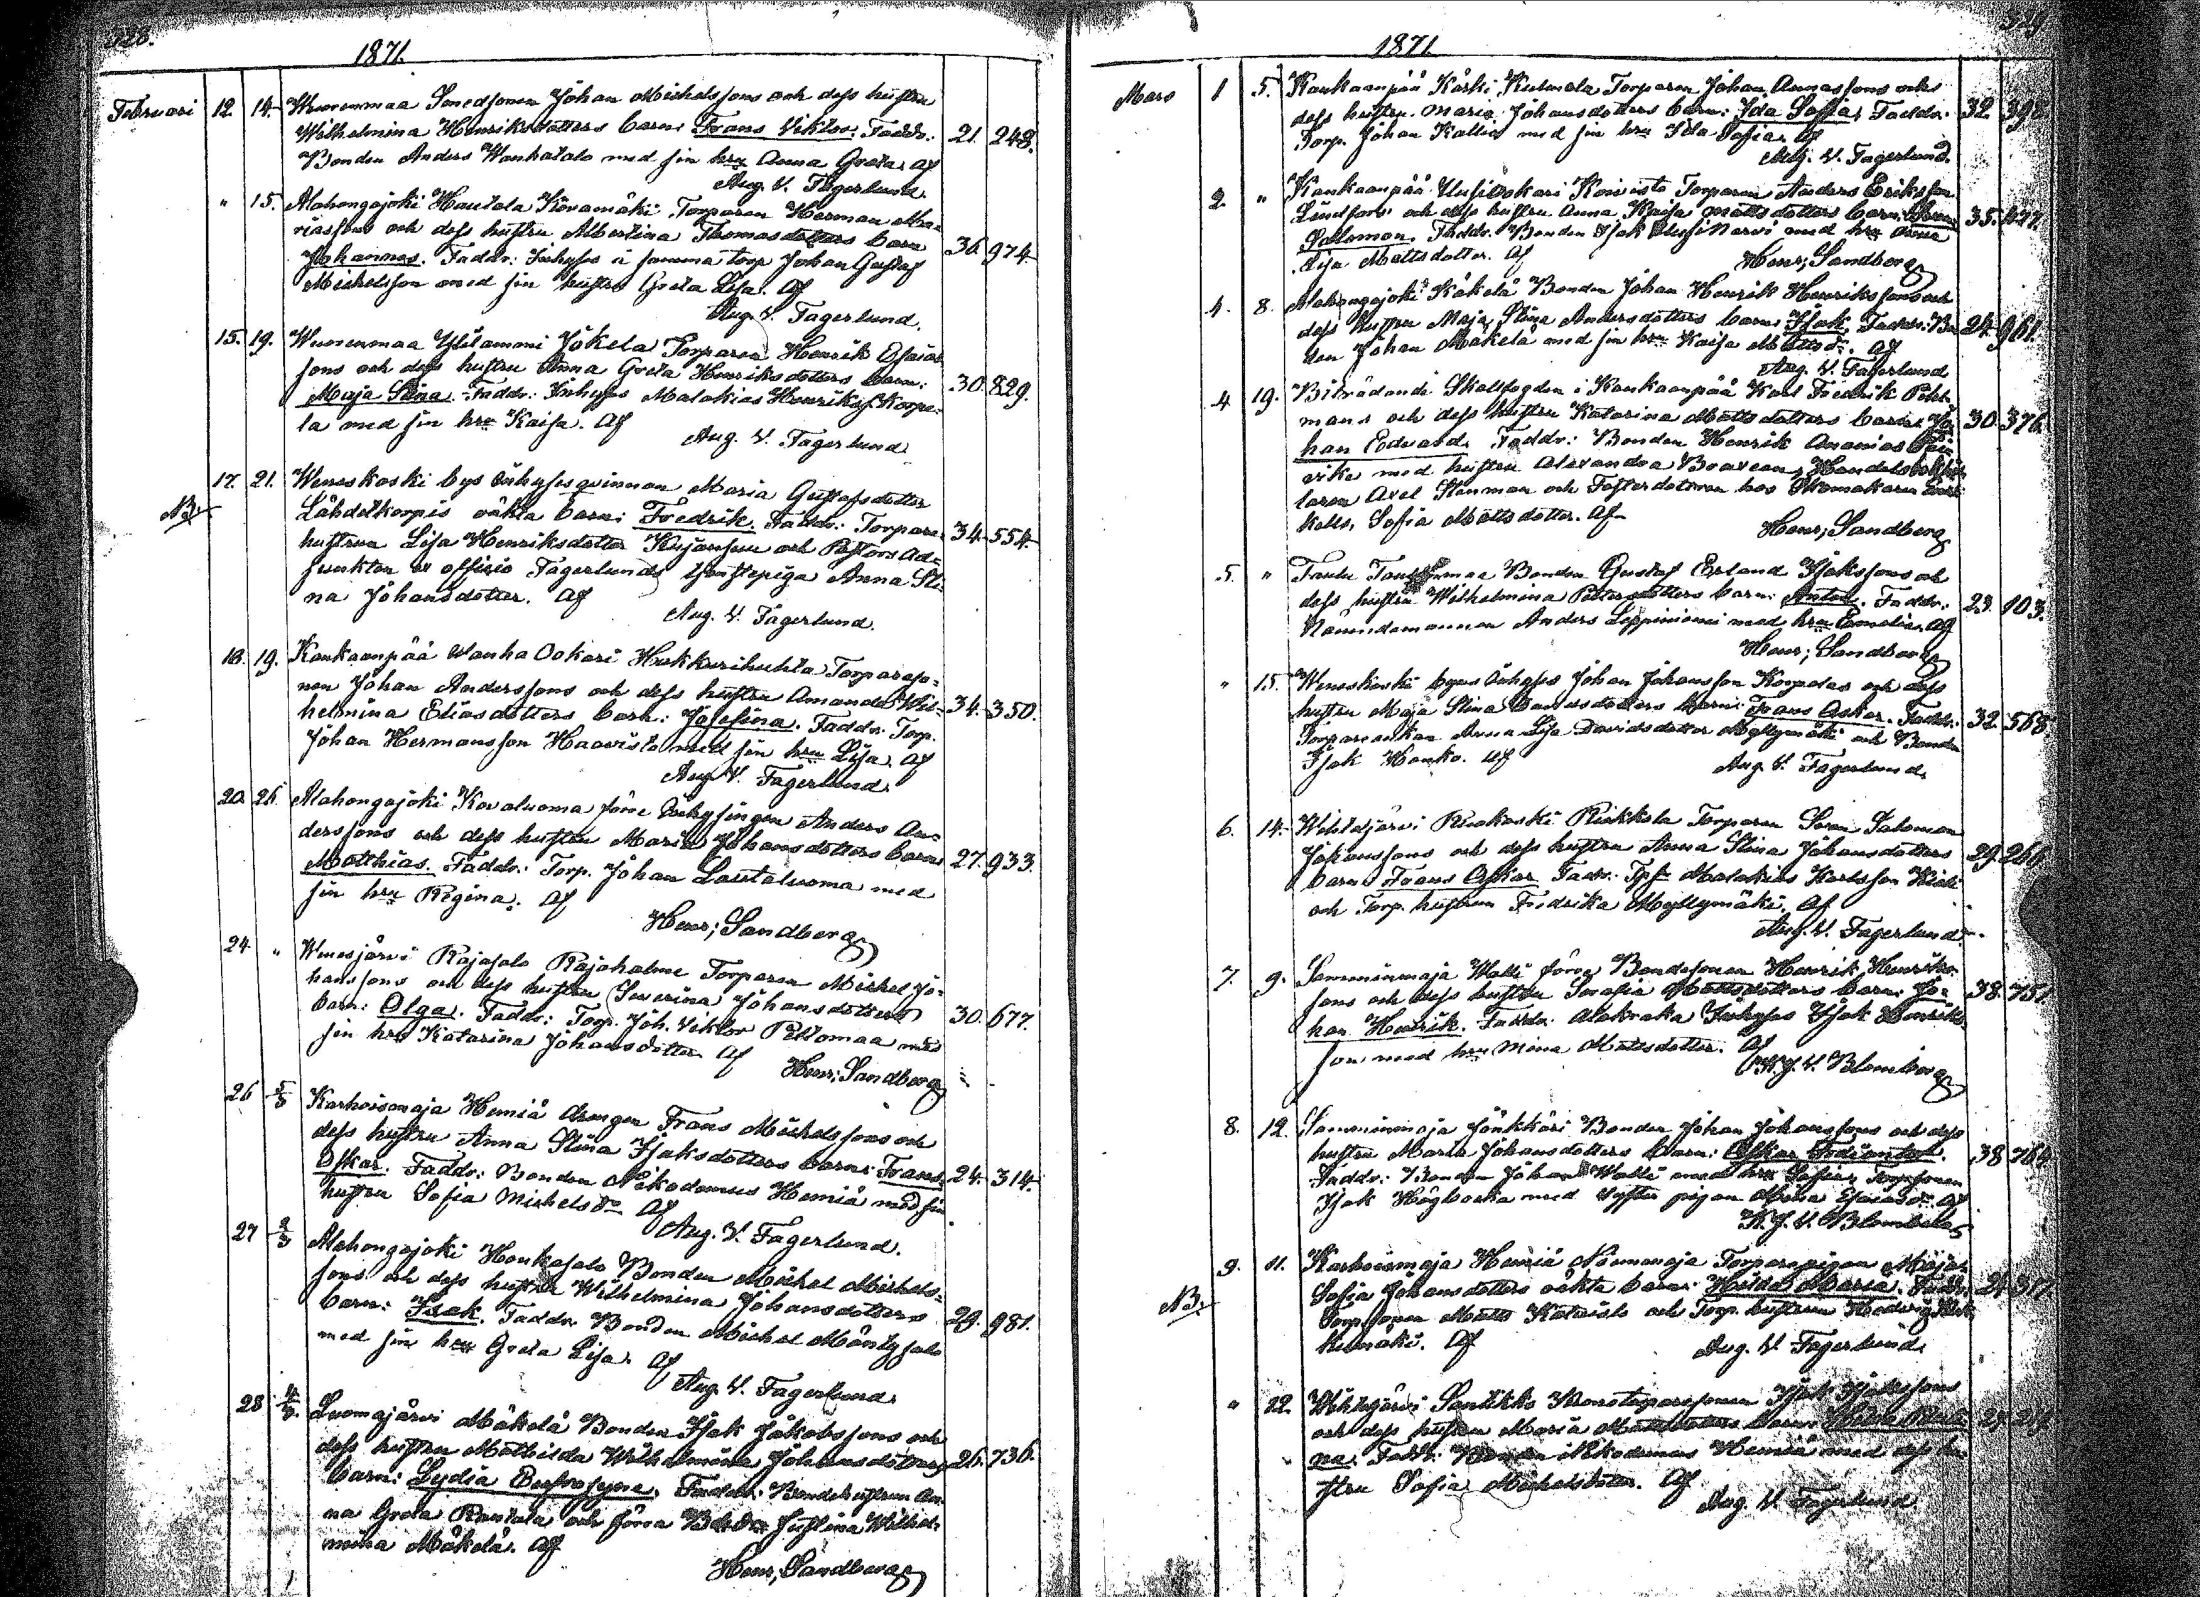 328.
1871.
Februari 12. 14. Wuorenmaa Smedsonen Johan Michelssons och dess hustru
Wilhelmina Henriksdotters barn: Frans Viktor. Faddr: 21. 248.
Bonden Anders Wanhatalo med sin hru Anna Greta. Af
Aug. V. Fagerlund.
" 15. Alahongojoki Hautala Torparen Herman Ma-
riassons och dess hustru Albertina Thomasdotters barn 36. 974.
Johannes. Faddr: Inhyses i samma torp Johan Gustaf
Michelsson med sin hustru Greta Lisa. Af
Aug. V. Fagerlund.
15. 19. Wuorenmaa Ylilammi Jokela Torparen Henrik Esaias-
sons och dess hustru Anna Greta Henriksdotters barn: 30. 829.
Maja Stina. Faddr: Inhyses Malakias Henrikss. Korpe-
la med sin hru Kaisa. Af
Aug. V. Fagerlund
17. 21. Weneskoski bys inhysesqvinnan Maria Gustafsdotter
NB. Lähdetkorpis oäkta barn: Fredrik. Faddr: Torpare- 34. 554.
hustrun Lisa Henriksdotter Kujansuu och Pastors Ad-
junkten ex officio Fagerlunds tjenstepiga Anna Sti-
na Johansdotter. Af
Aug. V. Fagerlund.
18. 19. Kankaanpää Wanha Ookari Hukkurihuhta Torpareso-
nen Johan Anderssons och dess hustru Amanda Wil- 34. 350.
helmina Eliasdotters barn: Josefina. Faddr: Torp.
Johan Hermansson Haavisto med sin hru Lisa. Af
Aug. V. Fagerlund.
20. 26. Alahongojoki Kovaluoma förre Inhysingen Anders An-
derssons och dess hustru Maria Johansdotters barn 27. 933.
Matthias. Faddr: Torp. Johan Lautaluoma med
sin hru Regina. Af
Henr; Sandberg
24 " Wenesjärvi Rajasalo Rajaholme Torparen Michel Jo-
hanssons och dess hustru Severina Johansdotters
barn: Olga. Faddr: Torp. Joh. Viktor Peltomaa med 30. 677.
sin hru Katarina Johansdotter. Af
Henr; Sandberg
26 5/3 Karhoismaja Hemiä drengen Frans Michelssons och
dess hustru Anna Stina Isaksdotters barn: Frans
Oskar. Faddr: Bonden Nikodemus Hemiä med sin 24. 314.
hustru Sofia Michelsdr Af
Aug. V. Fagerlund.
27 2/3 Alahongojoki Honkasalo Bonden Michel Michels-
sons och dess hustru Wilhelmina Johansdotters
barn: Isak. Faddr. Bonden Michel Mäntysalo 29. 981.
med sin hru Greta Lisa. Af
Aug. V. Fagerlund.
28 4/3. Luomajärvi Mäkelä Bonden Isak Jakobssons och
dess hustru Mathilda Wilhelmina Johansdotters 26. 736.
barn: Lydia Eufrosyne. Faddr: Bondehustrun An-
na Greta Rantala och förra Bdehu Justina Wilhel-
mina Mäkelä. Af
Henr; Sandberg
329
1871
Mars 1 5. Kankaanpää Kärki Kulmala Torparen Johan Annassons och
dess hustru Maria Johansdotters barn: Ida Sofia. Faddr: 32. 398.
Torp. Johan Kallio med sin hru Ida Sofia. Af
Aug. V. Fagerlund.
2. " Kankaanpää Koivisto Torparen Anders Eriksson
Lindfors och dess hustru Anna Kaisa Mattsdotters barn: 35. 477.
Salomon. Faddr. Bonden Isak med hru Anna
Lisa Mattsdotter. Af
Henr; Sandberg
4. 8. Alahongojoki Käkelä Bonden Johan Henrik Henrikssons och
dess hustru Maja Stina Andersdotters barn: Isak. Faddr: Bon- 24. 961.
den Johan Mäkelä med sin hru Kaisa Mattsdr. Af
Aug. V. Fagerlund
4 19. Biträdande Skallfogden i Kankaanpää Karl Fredrik Pohl-
mans och dess hustru Katarina Mattsdotters barn: Jo- 30. 376.
han Edvard. Faddr: Bonden Henrik Ananias
med hustru Alexandra Handels
Axel Stenman och Fosterdottren hos Skomakaren
Sofia Mattsdotter. Af
Henr; Sandberg
5. " Bonden Gustaf Erland Isakssons och
dess hustru Wilhelmina Pettersdotters barn: Anton. Faddr: 23. 103.
Nämndemannen Anders Leppiniemi med hru Emelie. Af
Henr; Sandberg
" 15. Weneskoski byes Inhyses Johan Johansson Korpelas och dess
hustru Maja Stina Davidsdotters barn: Frans Oskar. Faddr: 32. 568.
Torpareenkan Anna Lisa Davidsdotter Myllymäki och Bonden
Isak Honko. Af
Aug. V. Fagerlund.
6. 14. Wihtejärvi Ruokoski Riekkola Torparen Sven Salomon
Johanssons och dess hustru Anna Stina Johansdotters 29. 266.
barn: Frans Oskar. Faddr: Malakias Karlsson
och Torp. hustrun Fredrika Myllymäki. Af
Aug. V. Fagerlund.
7. 9. Samminmaja Walli förra Bondesonen Henrik Henriks-
sons och dess hustru Serafia Mattsdotters barn: Jo- 38. 751.
han Henrik. Faddr: Alakraka Inhyses Isak Henriks-
son med hru Mina Mattsdotter. Af
K. J. V. Blomberg
8. 12. Samminmaja Jönkkäri Bonden Johan Johanssons och dess
hustru Maria Johansdotters barn: Oskar Ferdinand. 38. 764.
Faddr: Bonden Johan Walli med hru Sofia; Torpsonen
Isak Högbacka med syster pigan Esaiasdr. Af
K. J. V. Blomberg
9. 11. Karhoismaja Hemiä Torparepigan Maja
NB. Sofia Johansdotters oäkta barn: Hilda Maria. Faddr: 24. 317.
Torp.sonen Matts Kataisto och Torp. hustrun Hedvig
Af
Aug. V. Fagerlund.
" 22. Wihtejärvi Santikko Kronotorparesonen Isak Isakssons
och dess hustru Maria Mattsdotters barn: Hilda
na. Faddr: Bonden Nikodemus Hemiä med dess hu-
stru Sofia Michelsdotter. Af
Aug. V. Fagerlund